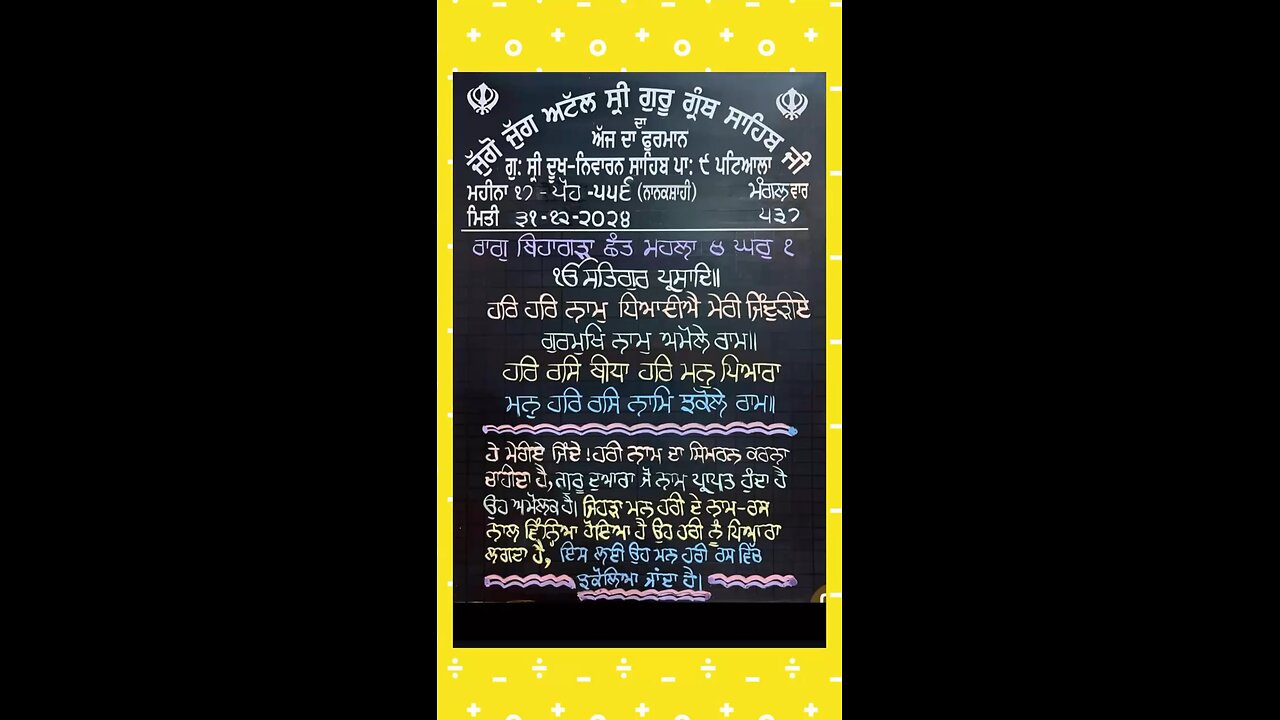 ਜੁੱਗੋ ਜੁੱਗ ਅਟੱਲ ਸ੍ਰੀ ਗੁਰੂ ਗ੍ਰੰਥ ਸਾਹਿਬ ਜੀ
ਦਾ
ਅੱਜ ਦਾ ਫੁਰਮਾਨ
ਗੁ: ਸ੍ਰੀ ਦੂਖ-ਨਿਵਾਰਨ ਸਾਹਿਬ ਪਾ: ੯ ਪਟਿਆਲਾ
ਮਹੀਨਾ ੧੭ - ਪੋਹ -੫੫੬ (ਨਾਨਕਸ਼ਾਹੀ) ਮੰਗਲਵਾਰ
ਮਿਤੀ ੩੧-੧੨-੨੦੨੪ ੫੩੭
ਰਾਗੁ ਬਿਹਾਗੜਾ ਛੰਤ ਮਹਲਾ ੪ ਘਰੁ ੧
ੴ ਸਤਿਗੁਰ ਪ੍ਰਸਾਦਿ॥
ਹਰਿ ਹਰਿ ਨਾਮੁ ਧਿਆਈਐ ਮੇਰੀ ਜਿੰਦੁੜੀਏ
ਗੁਰਮੁਖਿ ਨਾਮੁ ਅਮੋਲੇ ਰਾਮ॥
ਹਰਿ ਰਸਿ ਬੀਧਾ ਹਰਿ ਮਨੁ ਪਿਆਰਾ
ਮਨੁ ਹਰਿ ਰਸਿ ਨਾਮਿ ਝਕੋਲੇ ਰਾਮ॥
ਹੇ ਮੇਰੀਏ ਜਿੰਦੇ! ਹਰੀ ਨਾਮ ਦਾ ਸਿਮਰਨ ਕਰਨਾ
ਚਾਹੀਦਾ ਹੈ, ਗੁਰੂ ਦੁਆਰਾ ਜੋ ਨਾਮ ਪ੍ਰਾਪਤ ਹੁੰਦਾ ਹੈ
ਉਹ ਅਮੋਲਕ ਹੈ। ਜਿਹੜਾ ਮਨ ਹਰੀ ਦੇ ਨਾਮ-ਰਸ
ਨਾਲ ਵਿੰਨ੍ਹਿਆ ਹੋਇਆ ਹੈ ਉਹ ਹਰੀ ਨੂੰ ਪਿਆਰਾ
ਲਗਦਾ ਹੈ, ਇਸ ਲਈ ਉਹ ਮਨ ਹਰੀ ਰਸ ਵਿੱਚ
ਝਕੋਲਿਆ ਜਾਂਦਾ ਹੈ।